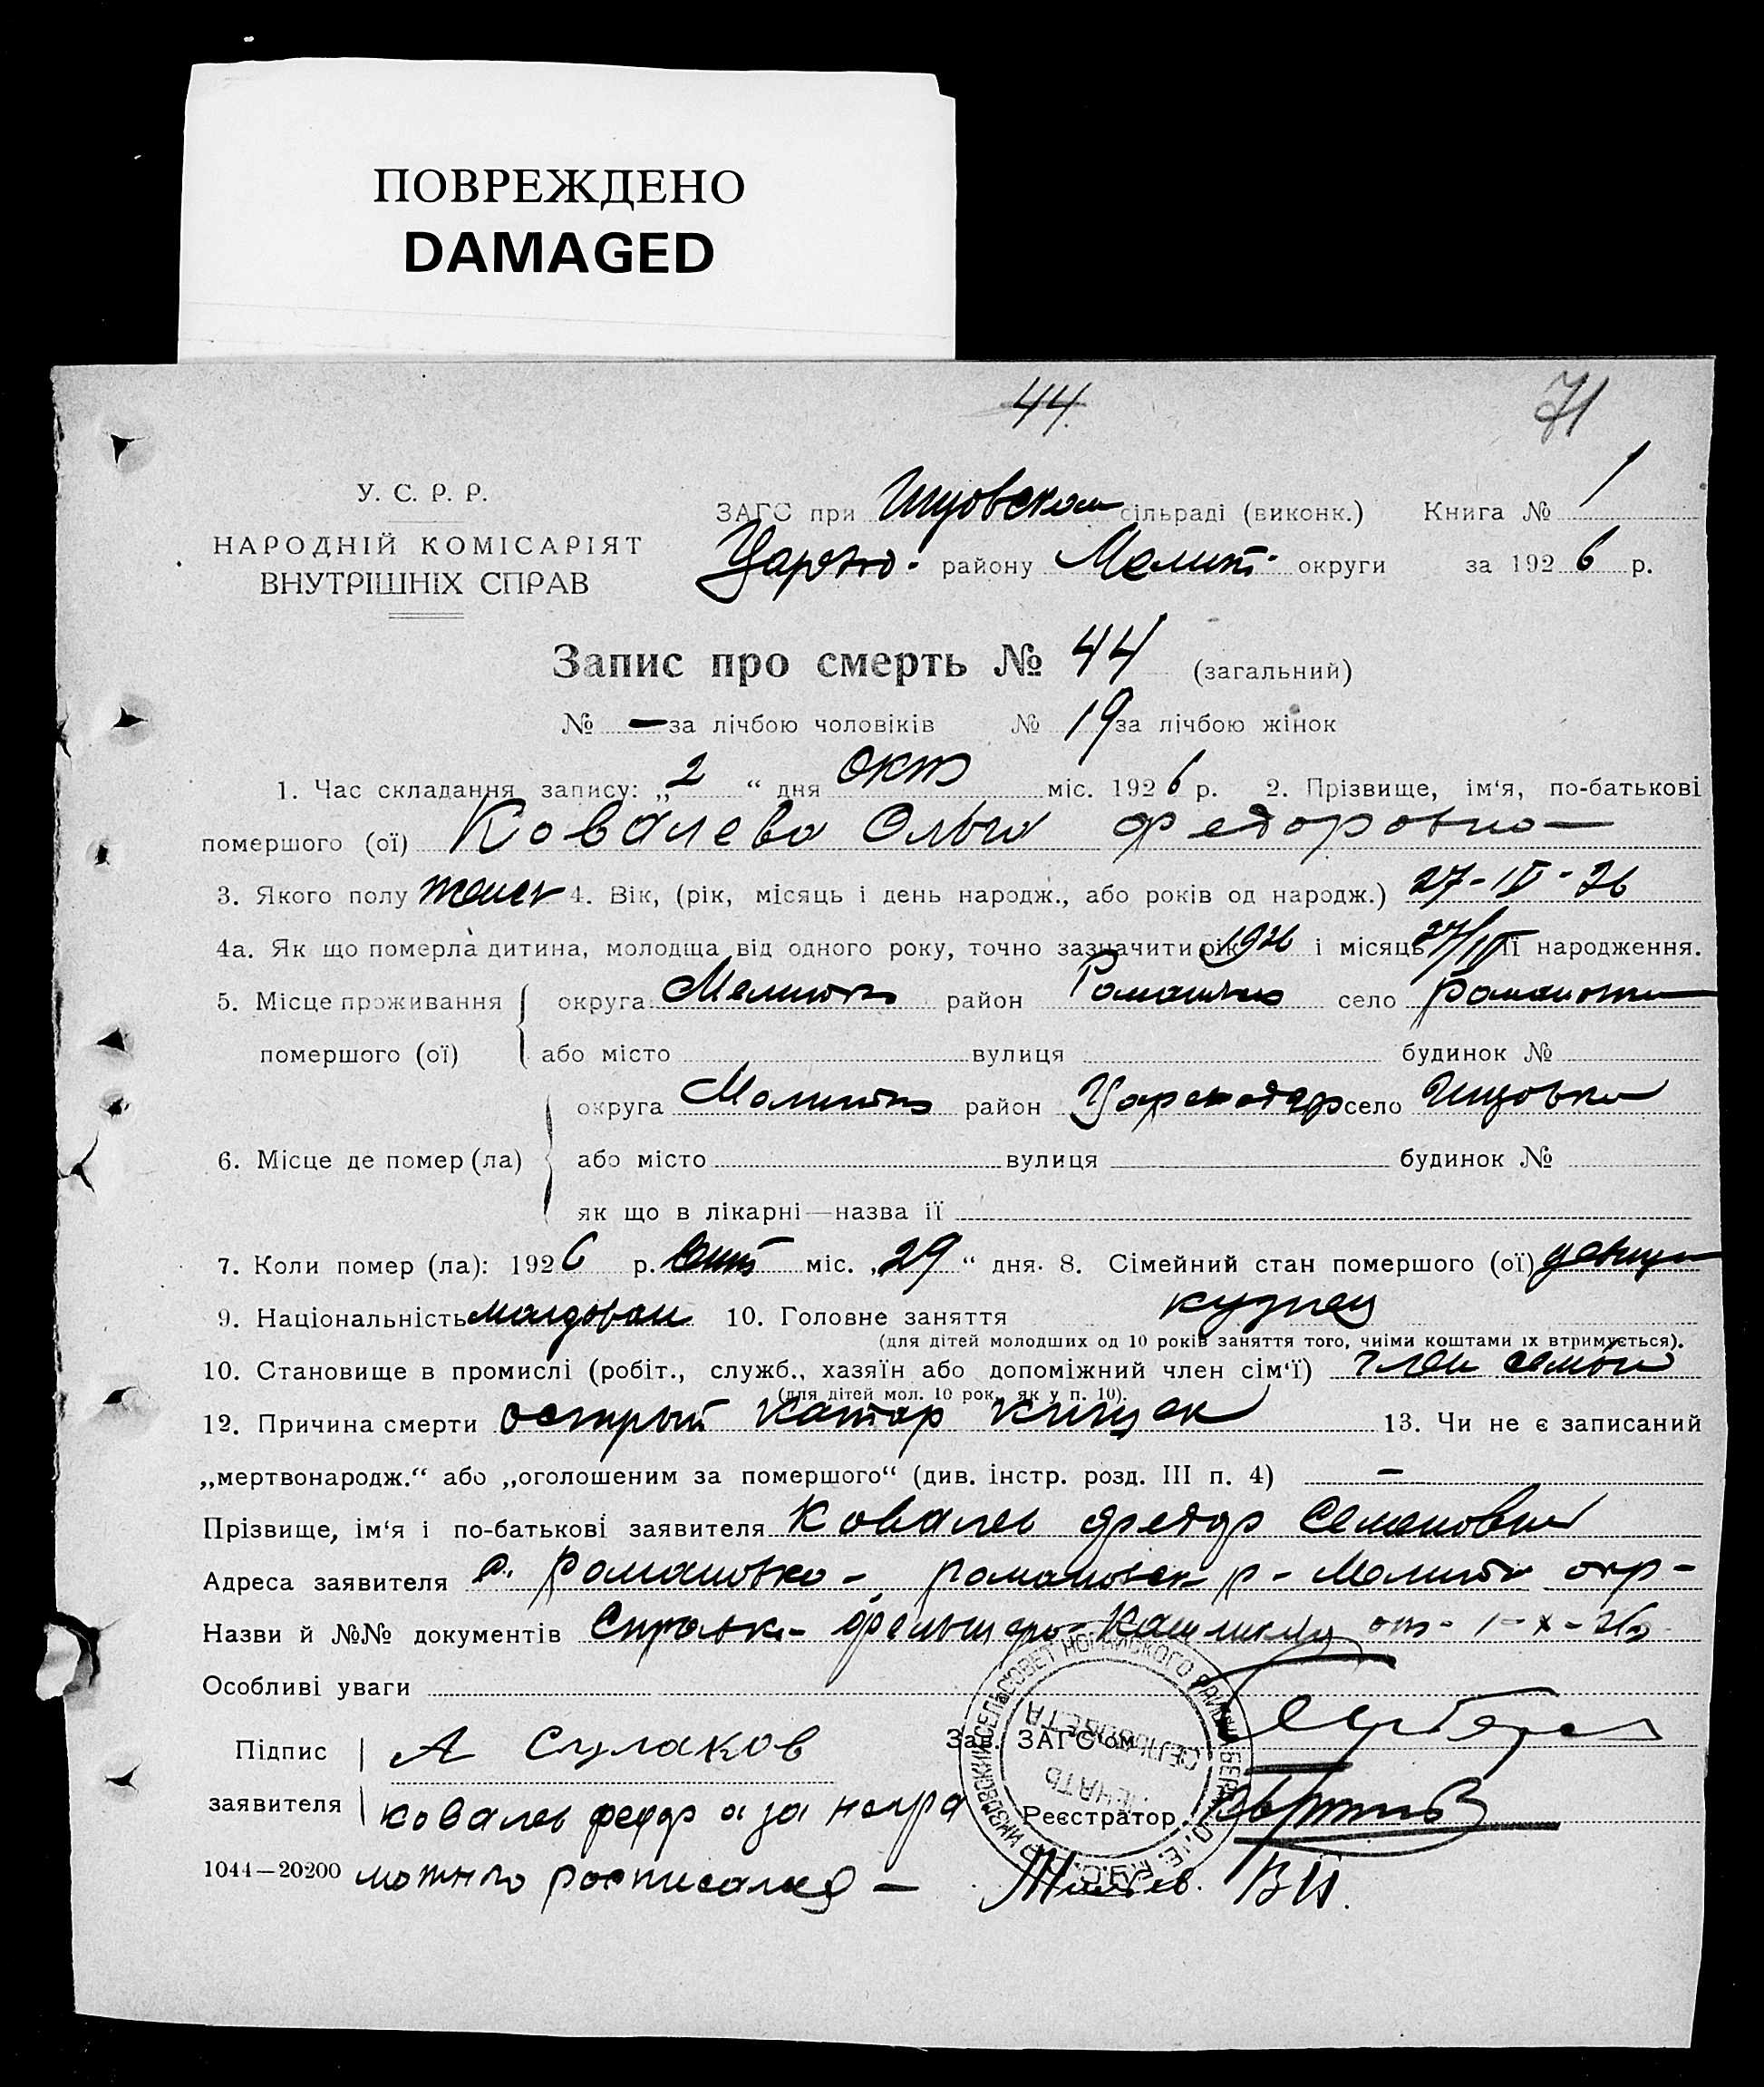 ПОВРЕЖДЕНО
DAMAGED
44.
71
У. С. Р. Р.
НАРОДНІЙ КОМІСАРІЯТ
ВНУТРІШНІХ СПРАВ
ЗАГС при сільраді (виконк.) Книга № 1
району Мелит. округи за 1926 р.
Запис про смерть № 44 (загальний)
№ — за лічбою чоловіків № 19 за лічбою жінок
1. Час складання запису: „2“ дня окт міс. 1926 р. 2. Прізвище, ім‘я, по-батькові
помершого (ої) Ковалева Ольга Федоровна
3. Якого полу женск 4. Вік, (рік, місяць і день народж., або років од народж.) 27-IV-26
4а. Як що померла дитина, молодща від одного року, точно зазначити рік 1926 і місяць 27/IV її народження.
5. Місце проживання округа Мелитоп район село Романовка
помершого (ої) або місто вулиця будинок №
округа Мелитоп район село
6. Місце де помер (ла) або місто вулиця будинок №
як що в лікарні—назва її
7. Коли помер (ла): 1926 р. міс. „29“ дня. 8. Сімейний стан помершого (ої) девица
9. Національність молдован 10. Головне заняття кузнец
(для дітей молодших од 10 років заняття того, чиіми коштами їх втримується).
10. Становище в промислі (робіт., служб., хазяїн або допоміжний член сім‘ї) член семьи
(для дітей мол. 10 рок., як у п. 10).
12. Причина смерти острый катар кишек 13. Чи не є записаний
„мертвонародж.“ або „оголошеним за помершого“ (див. інстр. розд. III п. 4) —
Прізвище, ім‘я і по-батькові заявителя Ковалев Федор Семенович
Адреса заявителя с. Романовка - Романовск р - Мелитоп окр -
Назви й №№ документів Справк- фельшера от- 1-X-26
Особливі уваги
Підпис А Сулаков
Зав. ЗАГС‘ом
заявителя Ковалев федор а за негра
Реєстратор
1044—20200 мотнго росписался —
В И.